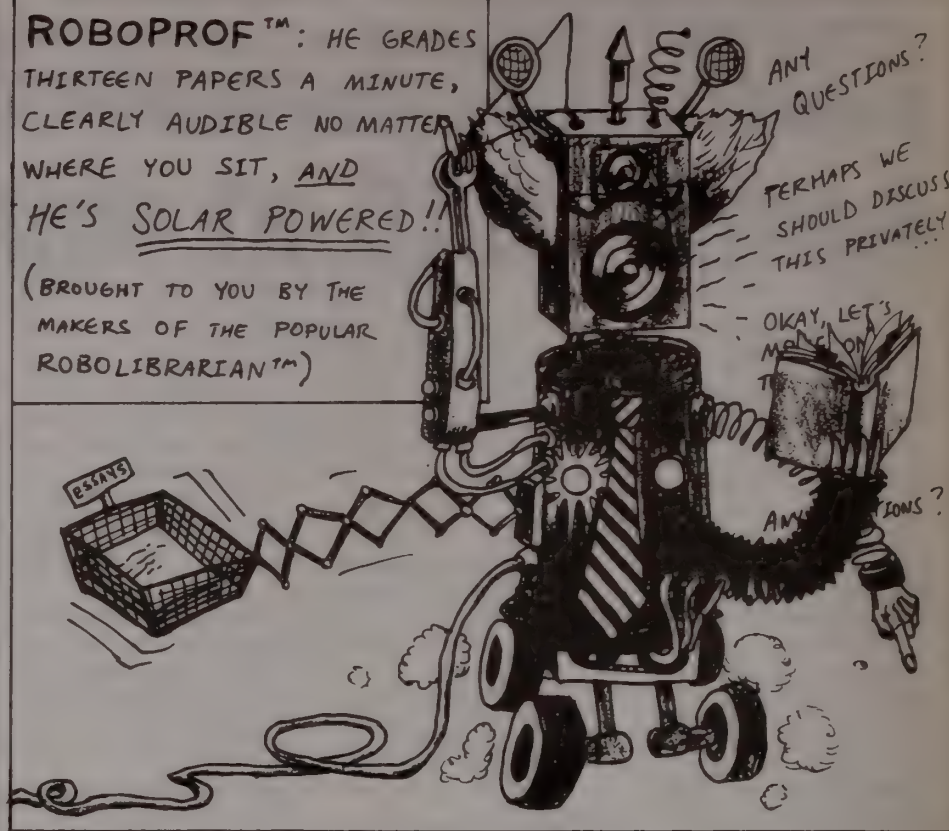 ROBOPROF™: HE GRADES
THIRTEEN PAPERS A MINUTE,
CLEARLY AUDIBLE NO MATTER
WHERE YOU SIT, AND
HE'S SOLAR POWERED!!
(BROUGHT TO YOU BY THE
MAKERS OF THE POPULAR
ROBOLIBRARIAN™)
ANY
QUESTIONS?
PERHAPS WE
SHOULD DISCUSS
THIS PRIVATELY
...
OKAY, LET'S
ESSAYS